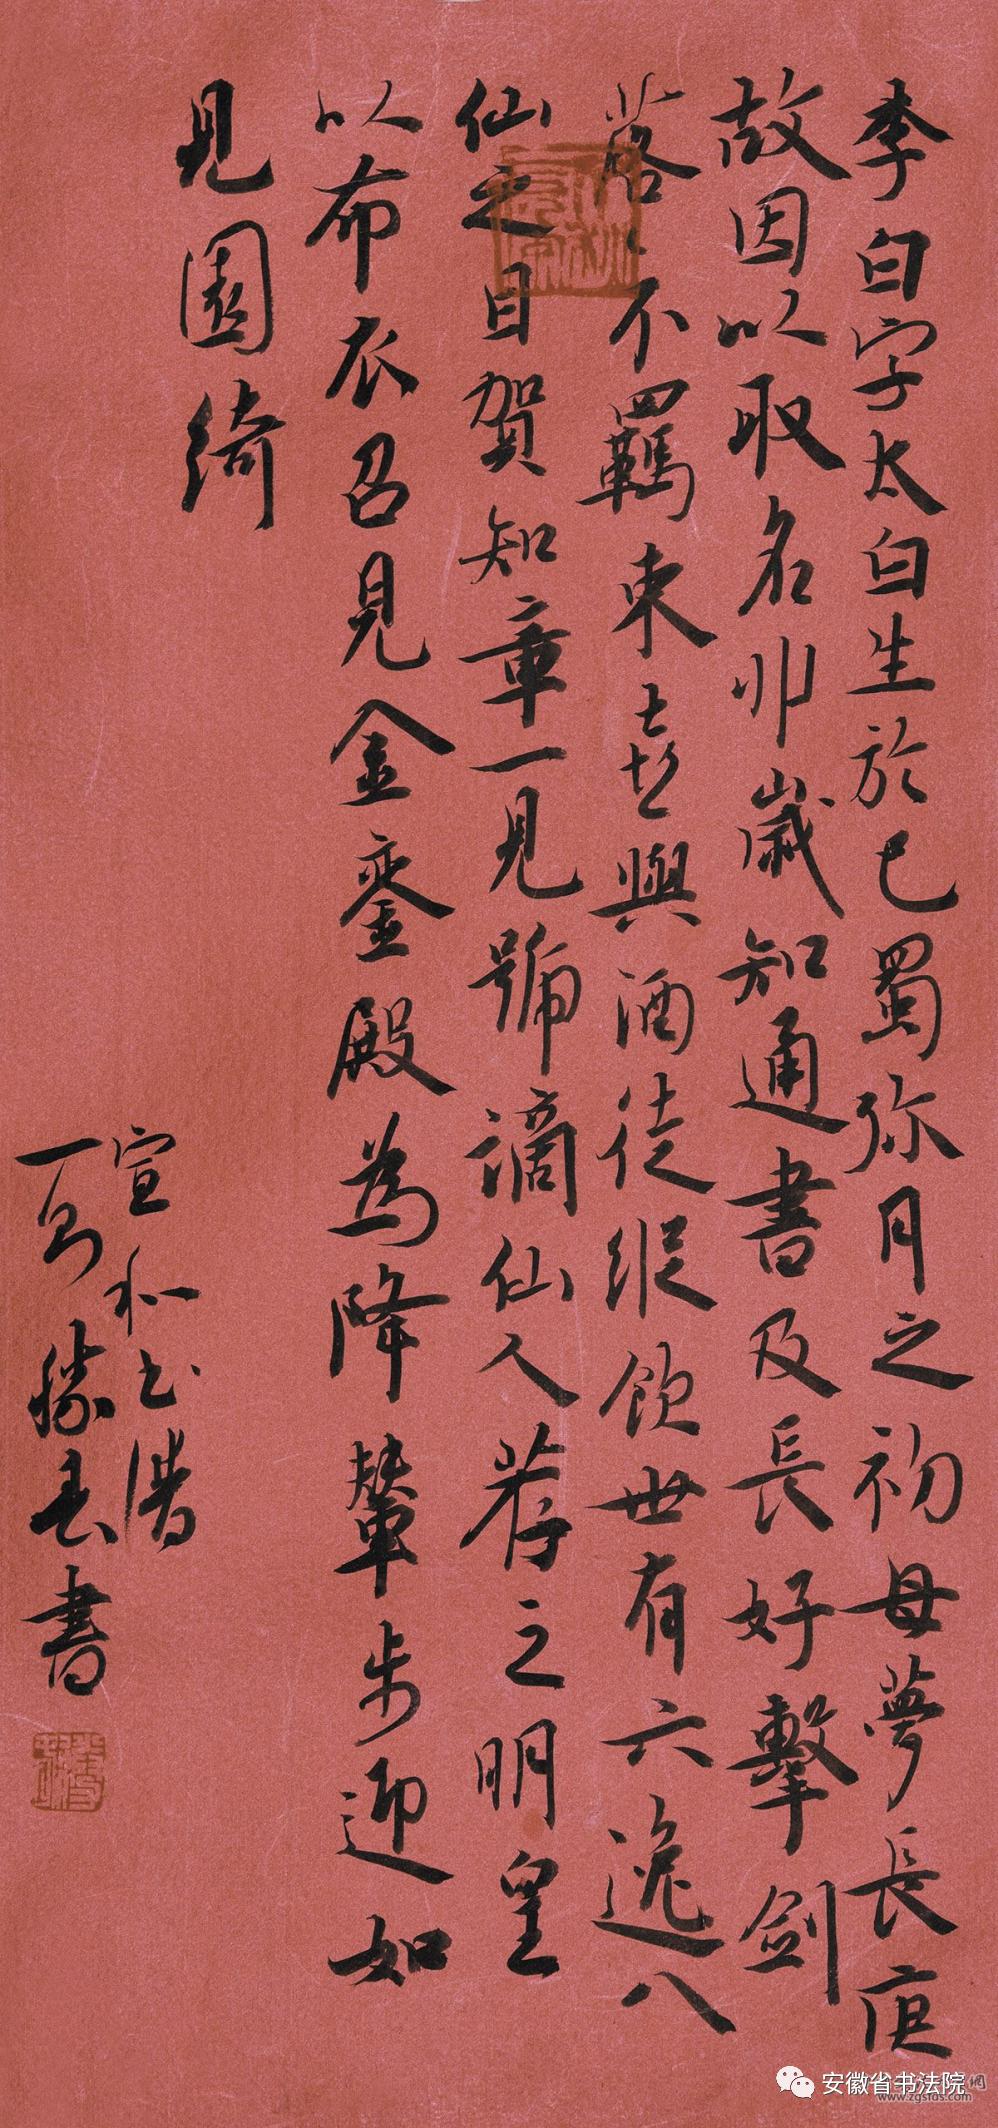 李白字太白生於巴蜀弥月之初母夢長庚
故因以取名丱歲知通書及長好擊劍
落不羈束喜與酒徒縱飲世有六逸八
仙之目賀知章一見號謫仙人荐之明皇
以布衣召見金鑾殿為降輦步迎如
見園綺
宣和书谱
勝春書
安徽省书法院
www.zgsfds.com